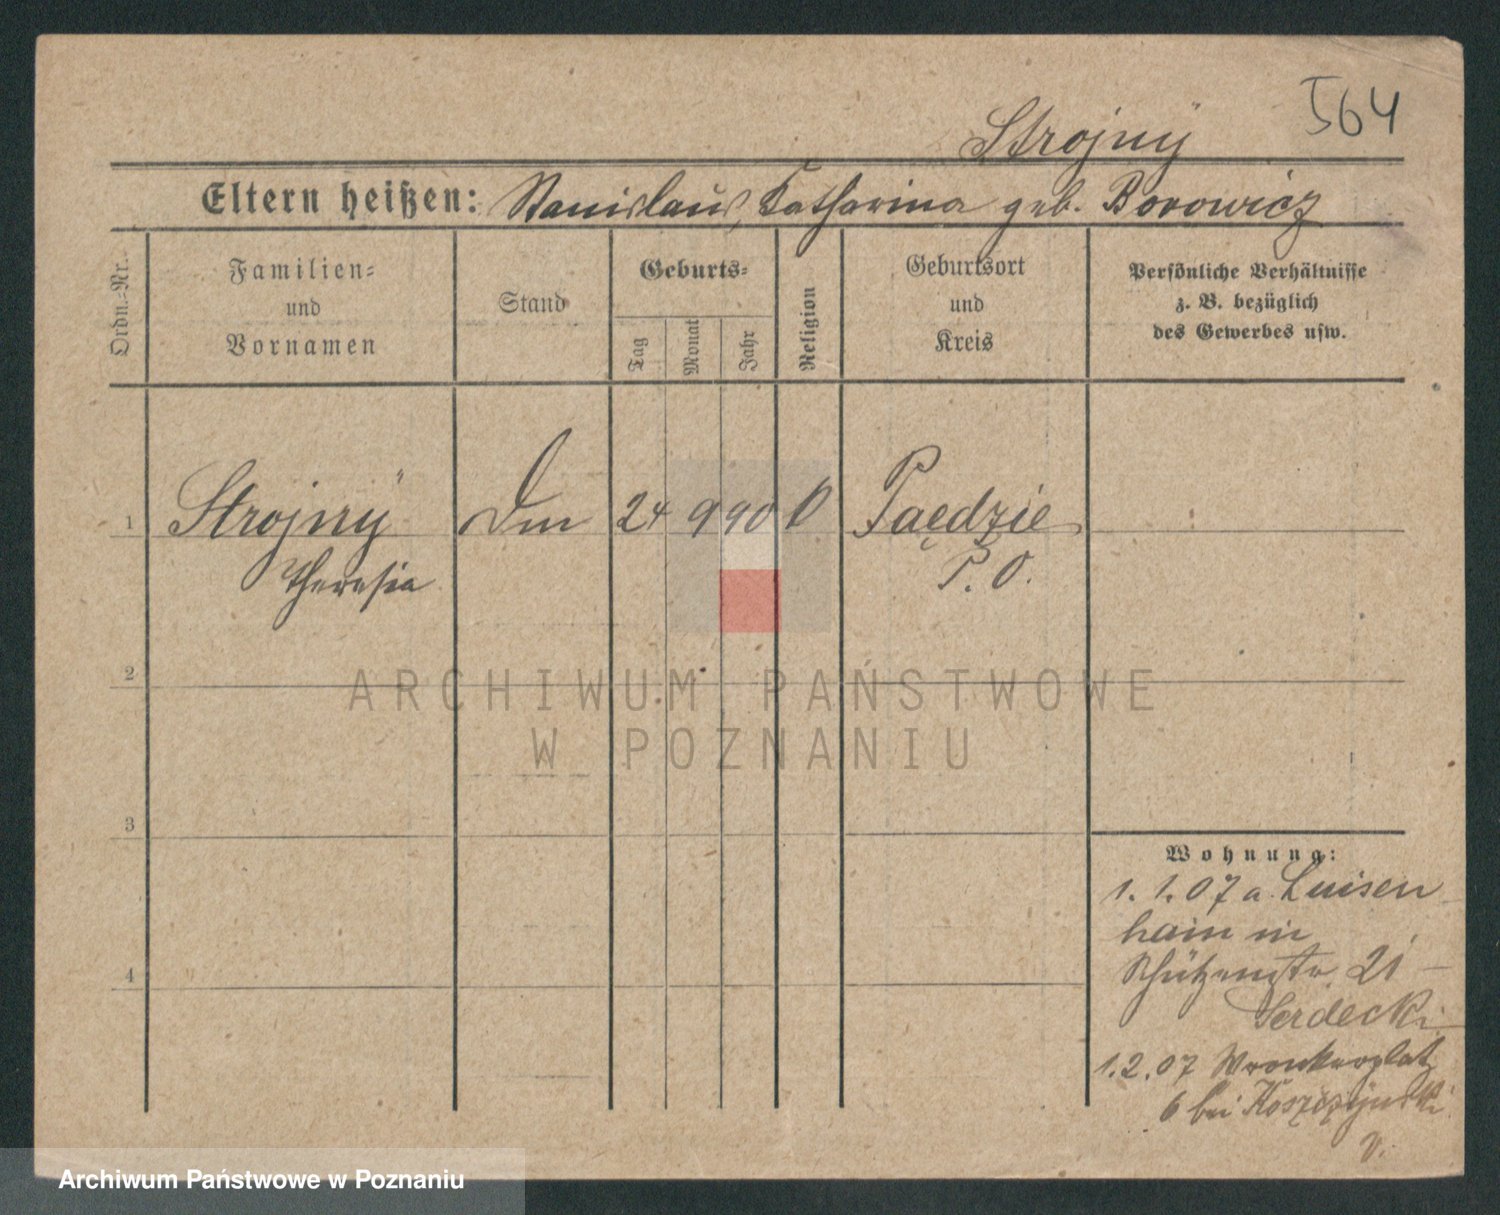 564
Strojnÿ
Eltern heißen: Stanislaus, Katharina geb. Borowicz
Ordn.-Nr.
Familien- und Vornamen
Stand
Geburts-
Tag
Monat
Jahr
Religion
Geburtsort und Kreis
Persönliche Verhältnisse
z. B. bezüglich
des Gewerbes usw.
1 Strojnÿ 24 9 90 Paędzie
Theresia P. O.
ARCHIWUM PAŃSTWOWE
W POZNANIU
2
3
4
Wohnung:
1. 1. 07 a. Luisen
hain in
Schützenstr. 21
Serdecki
1. 2. 07 Wronkerplatz
6 bei
Archiwum Państwowe w Poznaniu